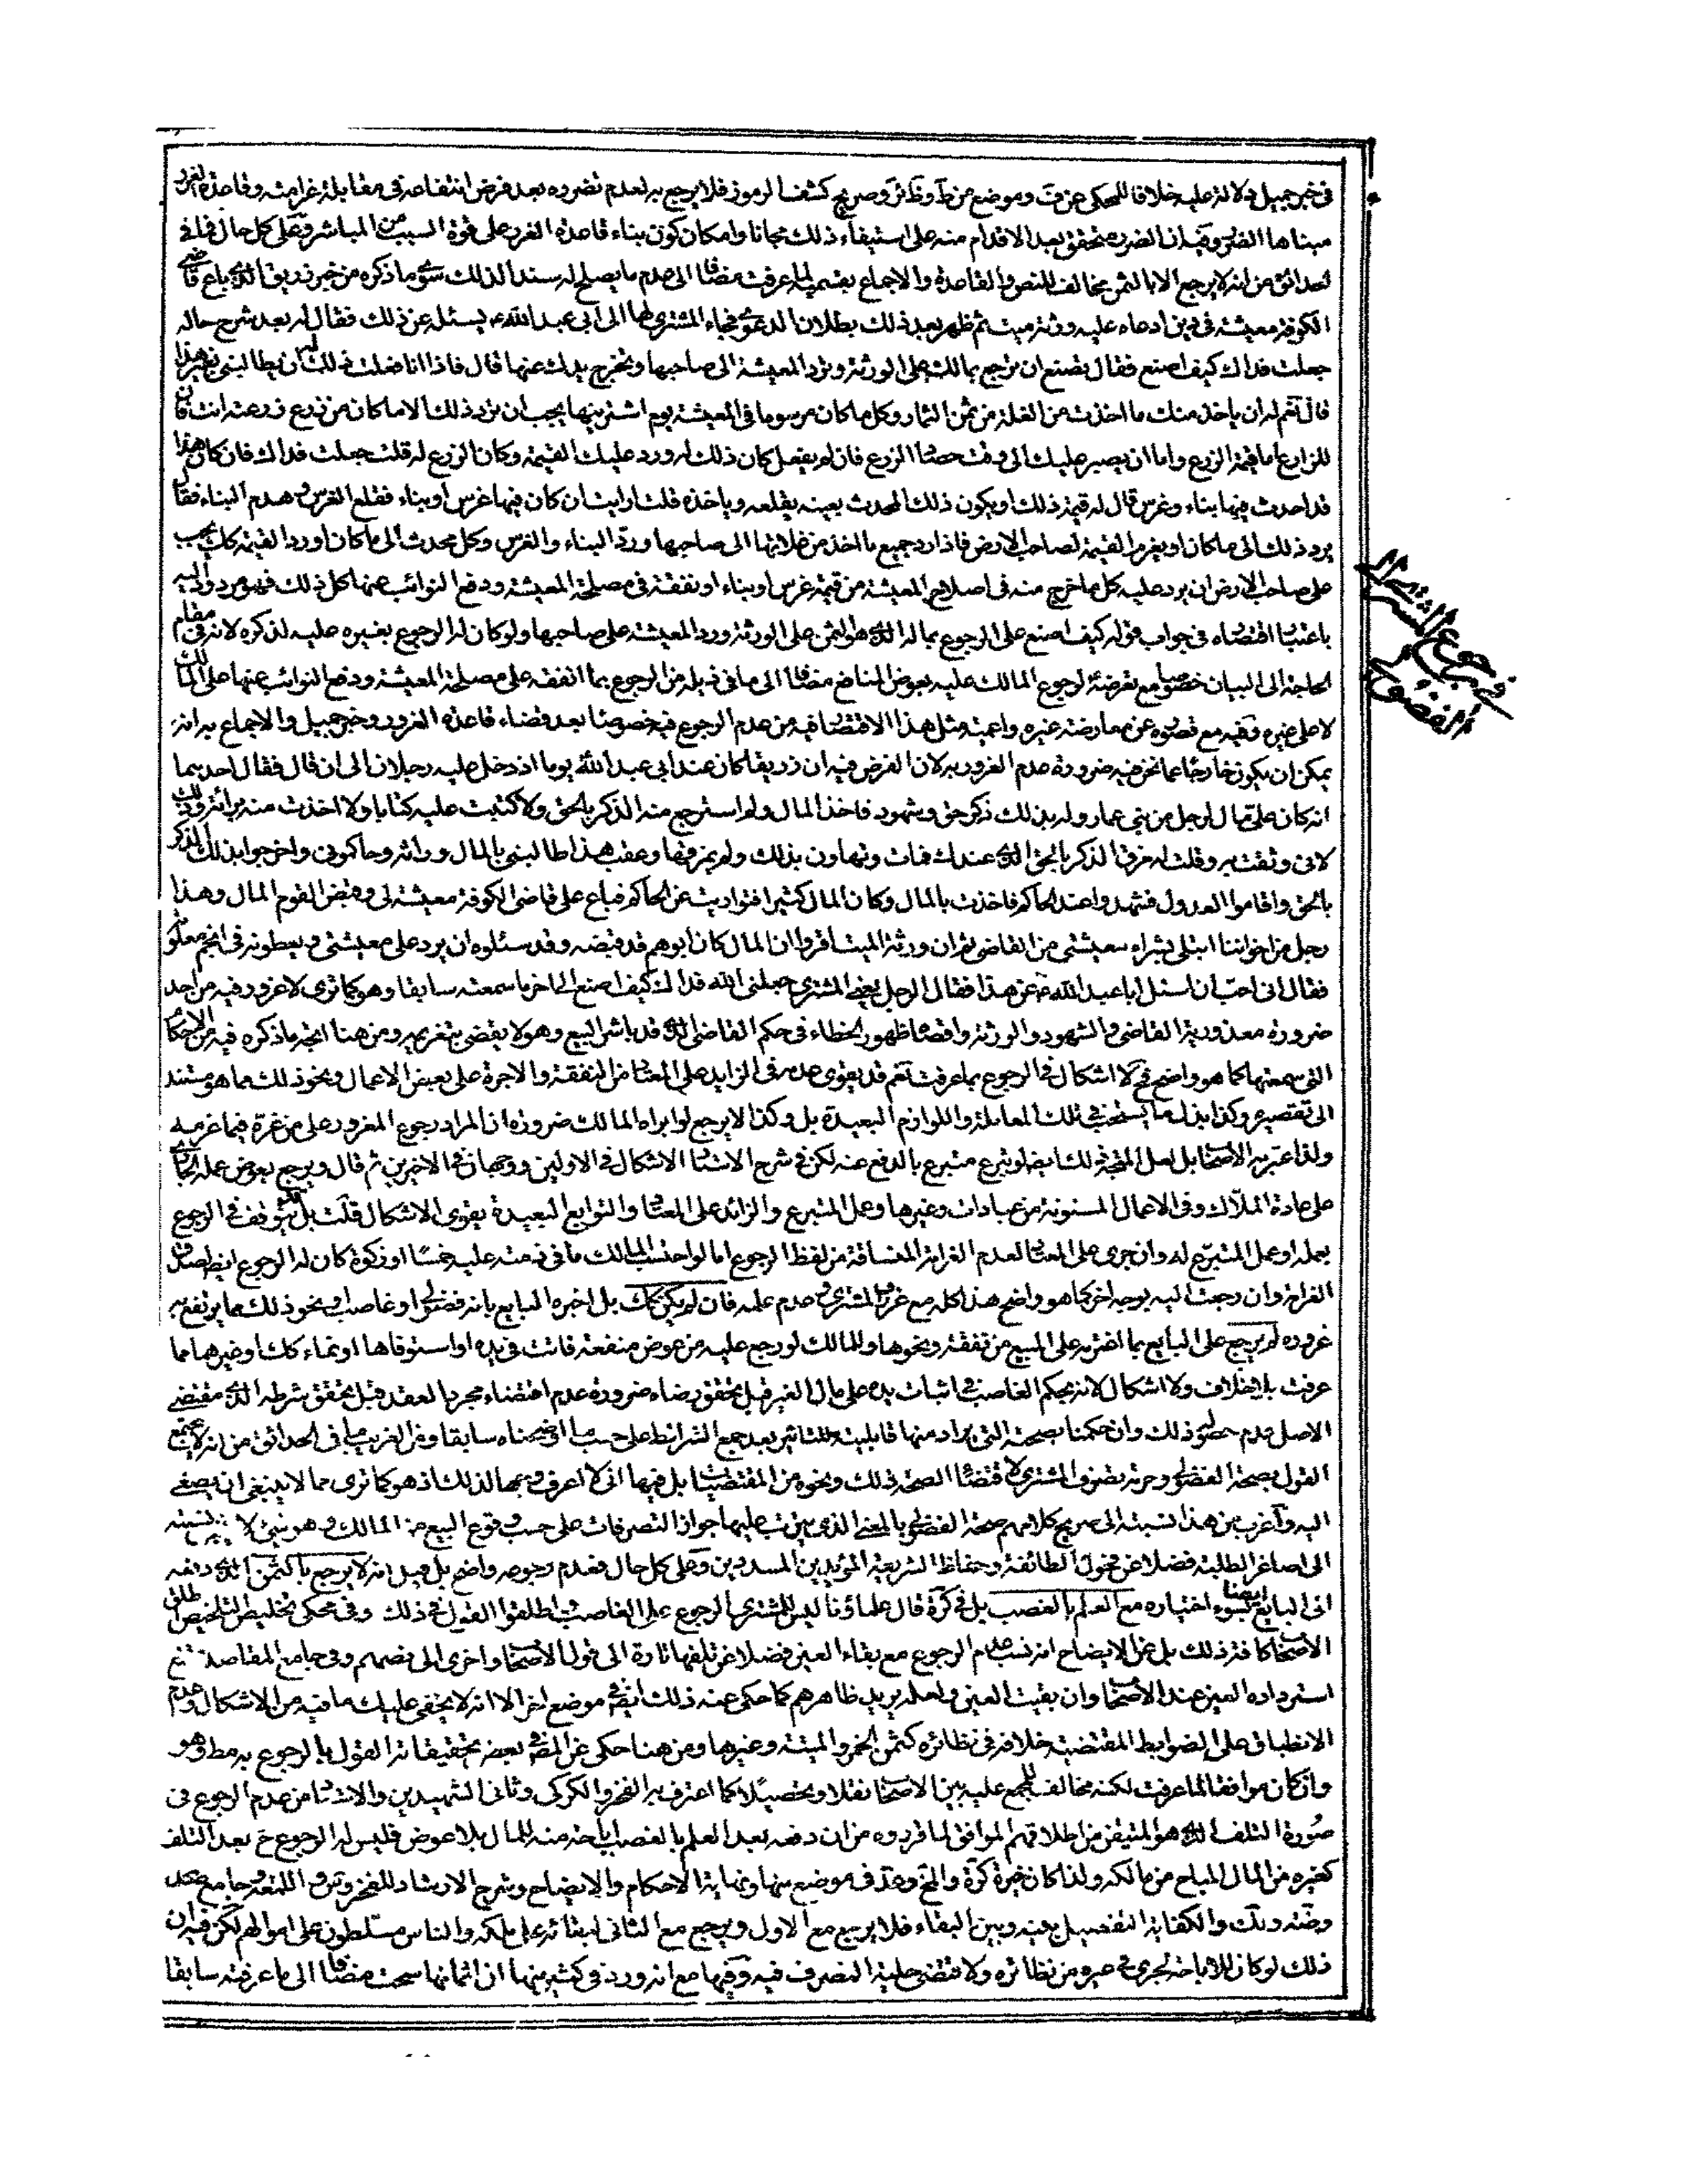 في خبر جميل دلالة عليه خلافا للمحكي عن ف وموضع من ط وظ ئر وصريح كشف الرموز فلا يرجع به لعدم تضرره بعد فرض انتفاعه في مقابلة غرامته وقاعدة الغرر
مبناها الضرر وفيه ان الضرر متحقق بعد الاقدام منه على استيفاء ذلك مجانا وامكان كون بناء قاعدة الغرر على قوة السبب من المباشر وعلى كل حال فما في
الحدائق من انه لا يرجع الا بالثمن مخالف للنص والقاعدة والاجماع بقسميه لما عرفت مضافا الى عدم ما يصلح له سندا لذلك سوى ما ذكره من خبر زريق الذي باع قاضي
الكوفة معيشة في دين ادعاه عليه ورثة ميت ثم ظهر بعد ذلك بطلان الدعوى فجاء المشتري لها الى ابي عبد الله ع يسئله عن ذلك فقال له بعد شرح حاله
جعلت فداك كيف اصنع فقال تصنع ان ترجع بمالك على الورثة وترد المعيشة الى صاحبها وتخرج يدك عنها قال فاذا انا فعلت ذلك له ان يطالبني بغير هذا
قال نعم له ان ياخذ منك ما اخذت من الغلة من ثمن الثمار وكل ما كان مرسوما في المعيشة يوم اشتريتها يجب ان ترد ذلك الا ما كان من زرع زرعته انت فان
للزارع اما قيمة الزرع واما ان يصبر عليك الى وقت حصاد الزرع فان لم يفعل كان ذلك له ورد عليك القيمة وكان الزرع له قلت جعلت فداك فان كان هذا
قد احدث فيها بناء وغرس قال له قيمة ذلك او يكون ذلك المحدث بعينه يقلعه وياخذه قلت ارايت ان كان فيها غرس او بناء فقلع الغرس وهدم البناء فقال
يرد ذلك الى ما كان او يغرم القيمة لصاحب الارض فاذا رد جميع ما اخذ من غلاتها الى صاحبها ورد البناء والغرس وكل محدث الى ما كان او رد القيمة كك يجب
على صاحب الارض ان يرد عليه كل ما خرج منه في اصلاح المعيشة من قيمة غرس او بناء او نفقة في مصلحة المعيشة ودفع النوائب عنها كل ذلك فهو مردود اليه
باعتبار اقتصاره في جواب قوله كيف اصنع على الرجوع بما له الذي هو الثمن على الورثة ورد المعيشة على صاحبها ولو كان له الرجوع بغيره عليه لذكره لانه في مقام
الحاجة الى البيان خصوصا مع تعرضه لرجوع المالك عليه بعوض المنافع مضافا الى ما في ذيله من الرجوع بما انفقه على مصلحة المعيشة ودفع النوائب عنها على المالك
لا على غيره وفيه مع قصوره عن معارضة غيره واعمية مثل هذا الاقتصار فيه من عدم الرجوع فيه خصوصا بعد قضاء قاعدة الغرور وخبر جميل والاجماع به انه
يمكن ان يكون خارجا عما نحن فيه ضرورة عدم الغرور به لان الفرض فيه ان زريقا كان عند ابي عبد الله يوما اذ دخل عليه رجلان الى ان قال فقال احدهما
انه كان علي مال لرجل من بني عمار وله بذلك ذكر حق وشهود فاخذ المال ولم استرجع منه الذكر بالحق ولا كتبت عليه كتابا ولا اخذت منه برائة وذلك
لاني وثقت به وقلت له مزق الذكر بالحق الذي عندك فمات وتهاون بذلك ولم يمزقها وعقب هذا طالبني بالمال وراثه وحاكموني واخرجوا بذلك الذكر
بالحق واقاموا العدول فشهدوا عند الحاكم فاخذت بالمال وكان المال كثيرا فتواريت عن الحاكم فباع علي قاضي الكوفة معيشة لي وقبض القوم المال وهذا
رجل من اخواننا ابتلى بشراء معيشتي من القاضي ثم ان ورثة الميت اقروا ان المال كان ابوهم قد قبضه وقد سئلوه ان يرد علي معيشتي ويعطونه في انجم معلومة
فقال اني احب ان اسئل ابا عبد الله ع عن هذا فقال الرجل يعني المشتري جعلني الله فداك كيف اصنع الى اخر ما سمعته سابقا وهو كما ترى لا غرور فيه من احد
ضرورة معذورية القاضي والشهود والورثة واقصاه ظهور الخطاء في حكم القاضي الذي قد باشر البيع وهو لا يقضي بتغريمه ومن هنا اتجه ما ذكره فيه من الاحكام
التي سمعتها كما هو واضح فح لا اشكال في الرجوع بما عرفت نعم قد يقوى عدمه في الزايد على المعتاد من النفقة والاجرة على بعض الاعمال ونحو ذلك مما هو مستند
الى تقصيره وكذا بذل ما يستحب في تلك المعاملة واللوازم البعيدة بل وكذا لا يرجع لو ابراه المالك ضرورة ان المراد رجوع المغرور على من غره فيما غرمه
ولذا عبر به الاصحاب بل لعل المتجه ذلك ايض لو تبرع متبرع بالدفع عنه لكن في شرح الاستاد الاشكال في الاولين ووجهان في الاخيرين ثم قال ويرجع بعوض عمله الجاري
على عادة الملاك وفي الاعمال المسنونة من عبادات وغيرها وعمل المتبرع والزائد على المعتاد والتوابع البعيدة يقوى الاشكال قلت بل قد يتوقف في الرجوع
بعمله او عمل المتبرع له وان جرى على المعتاد لعدم الغرامة المنساقة من لفظ الرجوع اما لو احتسب المالك ما في ذمته عليه خمسا او زكوة كان له الرجوع ايض لصدق
الغرامة وان رجعت اليه بوجه اخر كما هو واضح هذا كله مع غرور المشتري وعدم علمه فان لم يكن كك بل اخبره البايع بانه فضولي او غاصب او نحو ذلك مما يرتفع به
غروره لم يرجع على البايع بما اغترمه على المبيع من نفقة ونحوها وللمالك لو رجع عليه من عوض منفعة فاتت في يده او استوفاها او نماء كك او غيرهما مما
عرفت بلا خلاف ولا اشكال لانه بحكم الغاصب في اثبات يده على مال الغير قبل تحقق رضاه ضرورة عدم اقتضاء مجرد العقد قبل تحقق شرطه الذي مقتضى
الاصل عدم حصوله ذلك وان حكمنا بصحته التي يراد منها قابليته للتاثير بعد جمع الشرائط على حسب ما اوضحناه سابقا ومن الغريب ما في الحدائق من انه لا يجتمع
القول بصحة الفضولي وحرمة تصرف المشتري لاقتضاء الصحة ذلك ونحوه من المقتضيات بل فيها اني لا اعرف وجها لذلك اذ هو كما ترى مما لا ينبغي ان يصغى
اليه واغرب من هذا النسبة الى صريح كلامهم صحة الفضولي بالمعنى الذي يترتب عليها جواز التصرفات على حسب وقوع البيع من المالك وهو شيء لا ينبغي نسبته
الى اصاغر الطلبة فضلا عن فحول الطائفة وحفاظ الشريعة المؤيدين المسددين وعلى كل حال فعدم رجوعه واضح بل قيل انه لا يرجع بالثمن الذي دفعه
الى البايع بسوء اختياره ايضا مع العلم بالغصب بل في كرة قال علماؤنا ليس للمشتري الرجوع على الغاصب فاطلقوا القول في ذلك وفي محكي تخليص التلخيص اطلق
الاصحاب كافة ذلك بل عن الايضاح انه نسب عدم الرجوع مع بقاء العين فضلا عن تلفها تارة الى قول الاصحاب واخرى الى نصهم وفي جامع المقاصد منع
استرداده العين عند الاصحاب وان بقيت العين ولعله يريد ظاهرهم كما حكى عنه ذلك ايض في موضع اخر الا انه لا يخفى عليك ما فيه من الاشكال وعدم
الانطباق على الضوابط المقتضية خلافه في نظائره كثمن الخمر والميتة وغيرها ومن هنا حكى عن المص في بعض تحقيقاته القول بالرجوع به مط وهو
وان كان موافقا لما عرفت لكنه مخالف للمجمع عليه بين الاصحاب نقلا وتحصيلا كما اعترف به الفخر والكركي وثاني الشهيدين والاستاد من عدم الرجوع في
صورة التلف الذي هو المتيقن من اطلاقهم الموافق لما قرروه من ان دفعه بعد العلم بالغصب اباحة منه للمال بلا عوض فليس له الرجوع ح بعد التلف
كغيره من المال المباح من مالكه ولذا كان خيرة كرة والمخ وعد في موضع منها ونهاية الاحكام والايضاح وشرح الارشاد للفخر وس واللمعة وجامع صد
وضه ولك والكفاية التفصيل بينه وبين البقاء فلا يرجع مع الاول ويرجع مع الثاني لبقائه على ملكه والناس مسلطون على اموالهم لكن فيه ان
ذلك لو كان للاباحة لجرى في غيره من نظائره ولاقتضى حلية التصرف فيه وفيها مع انه ورد في كثير منها ان اثمانها سحت مضافا الى ما عرفته سابقا
في رجوع المشتري الى
الفضولي